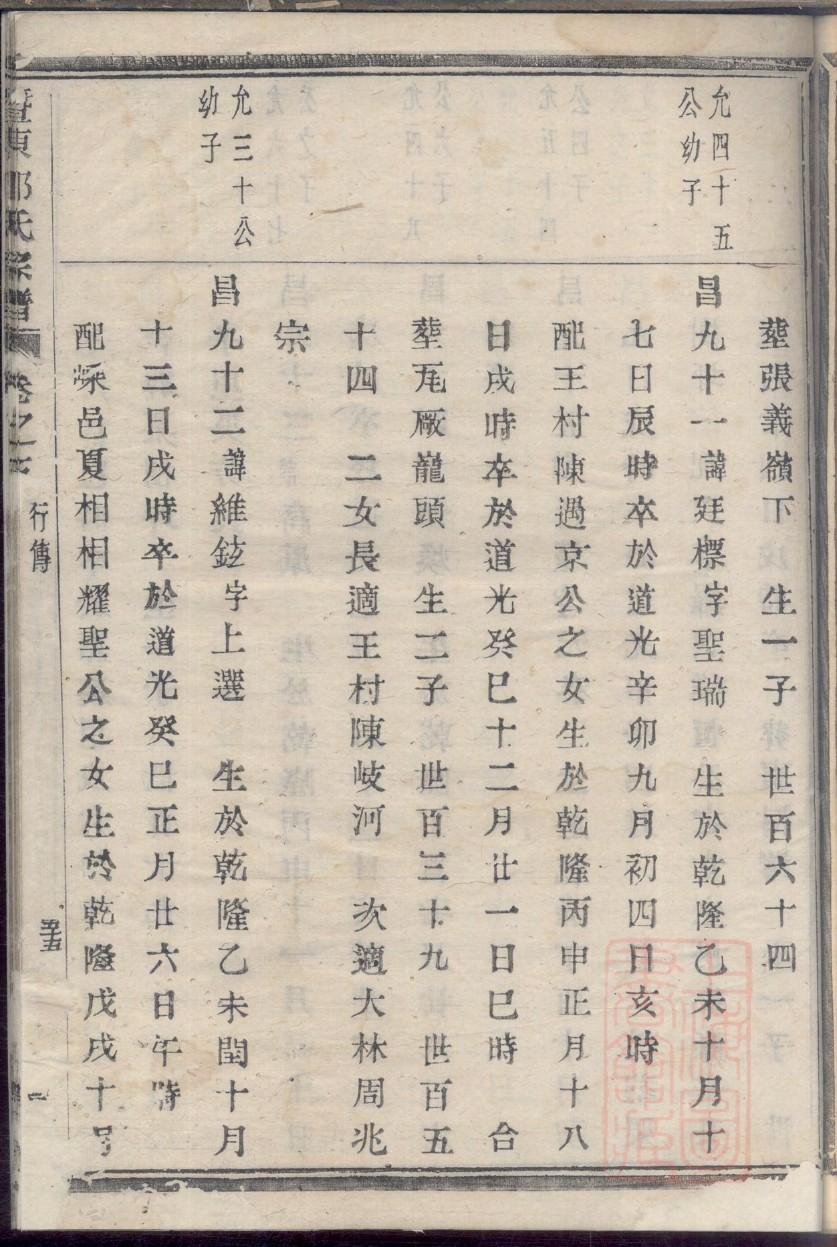 允四十五
公幼子
允三十公
幼子
塟張義嶺下 生一子 世百六十四
昌九十一諱廷標字聖瑞 生於乾隆乙未十月十
七日辰時卒於道光辛卯九月初四日亥時
配王村陳過京公之女生於乾隆丙申正月十八
日戌時卒於道光癸巳十二月廿一日巳時 合
塟瓦厰龍頭 生二子 世百三十九 世百五
十四 二女長適王村陳岐河 次適大林周兆
宗
昌九十二諱維鉉字上選 生於乾隆乙未閏十月
十三日戌時卒於道光癸巳正月廿六日午時
配嵊邑夏相相耀聖公之女生於乾隆戊戌十
暨東 氏宗譜 卷之 行傳